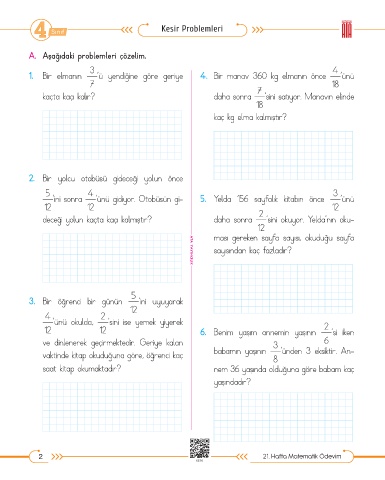 4. Sınıf
Kesir Problemleri
A. Aşağıdaki problemleri çözelim.
1. Bir elmanın 3/7 'ü yendiğine göre geriye
kaçta kaçı kalır?
2. Bir yolcu otobüsü gideceği yolun önce
5/12 'ini sonra 4/12 'ünü gidiyor. Otobüsün gi-
deceği yolun kaçta kaçı kalmıştır?
3. Bir öğrenci bir günün 5/12 'ini uyuyarak
4/12 'ünü okulda, 2/12 'sini ise yemek yiyerek
ve dinlenerek geçirmektedir. Geriye kalan
vaktinde kitap okuduğuna göre, öğrenci kaç
saat kitap okumaktadır?
4. Bir manav 360 kg elmanın önce 4/18 'ünü
daha sonra 7/18 'sini satıyor. Manavın elinde
kaç kg elma kalmıştır?
5. Yelda 156 sayfalık kitabın önce 3/12 'ünü
daha sonra 2/12 'sini okuyor. Yelda'nın oku-
ması gereken sayfa sayısı, okuduğu sayfa
sayısından kaç fazladır?
6. Benim yaşım annemin yaşının 2/6 'si iken
babamın yaşının 3/8 'ünden 3 eksiktir. An-
nem 36 yaşında olduğuna göre babam kaç
yaşındadır?
2
21. Hafta Matematik Ödevim